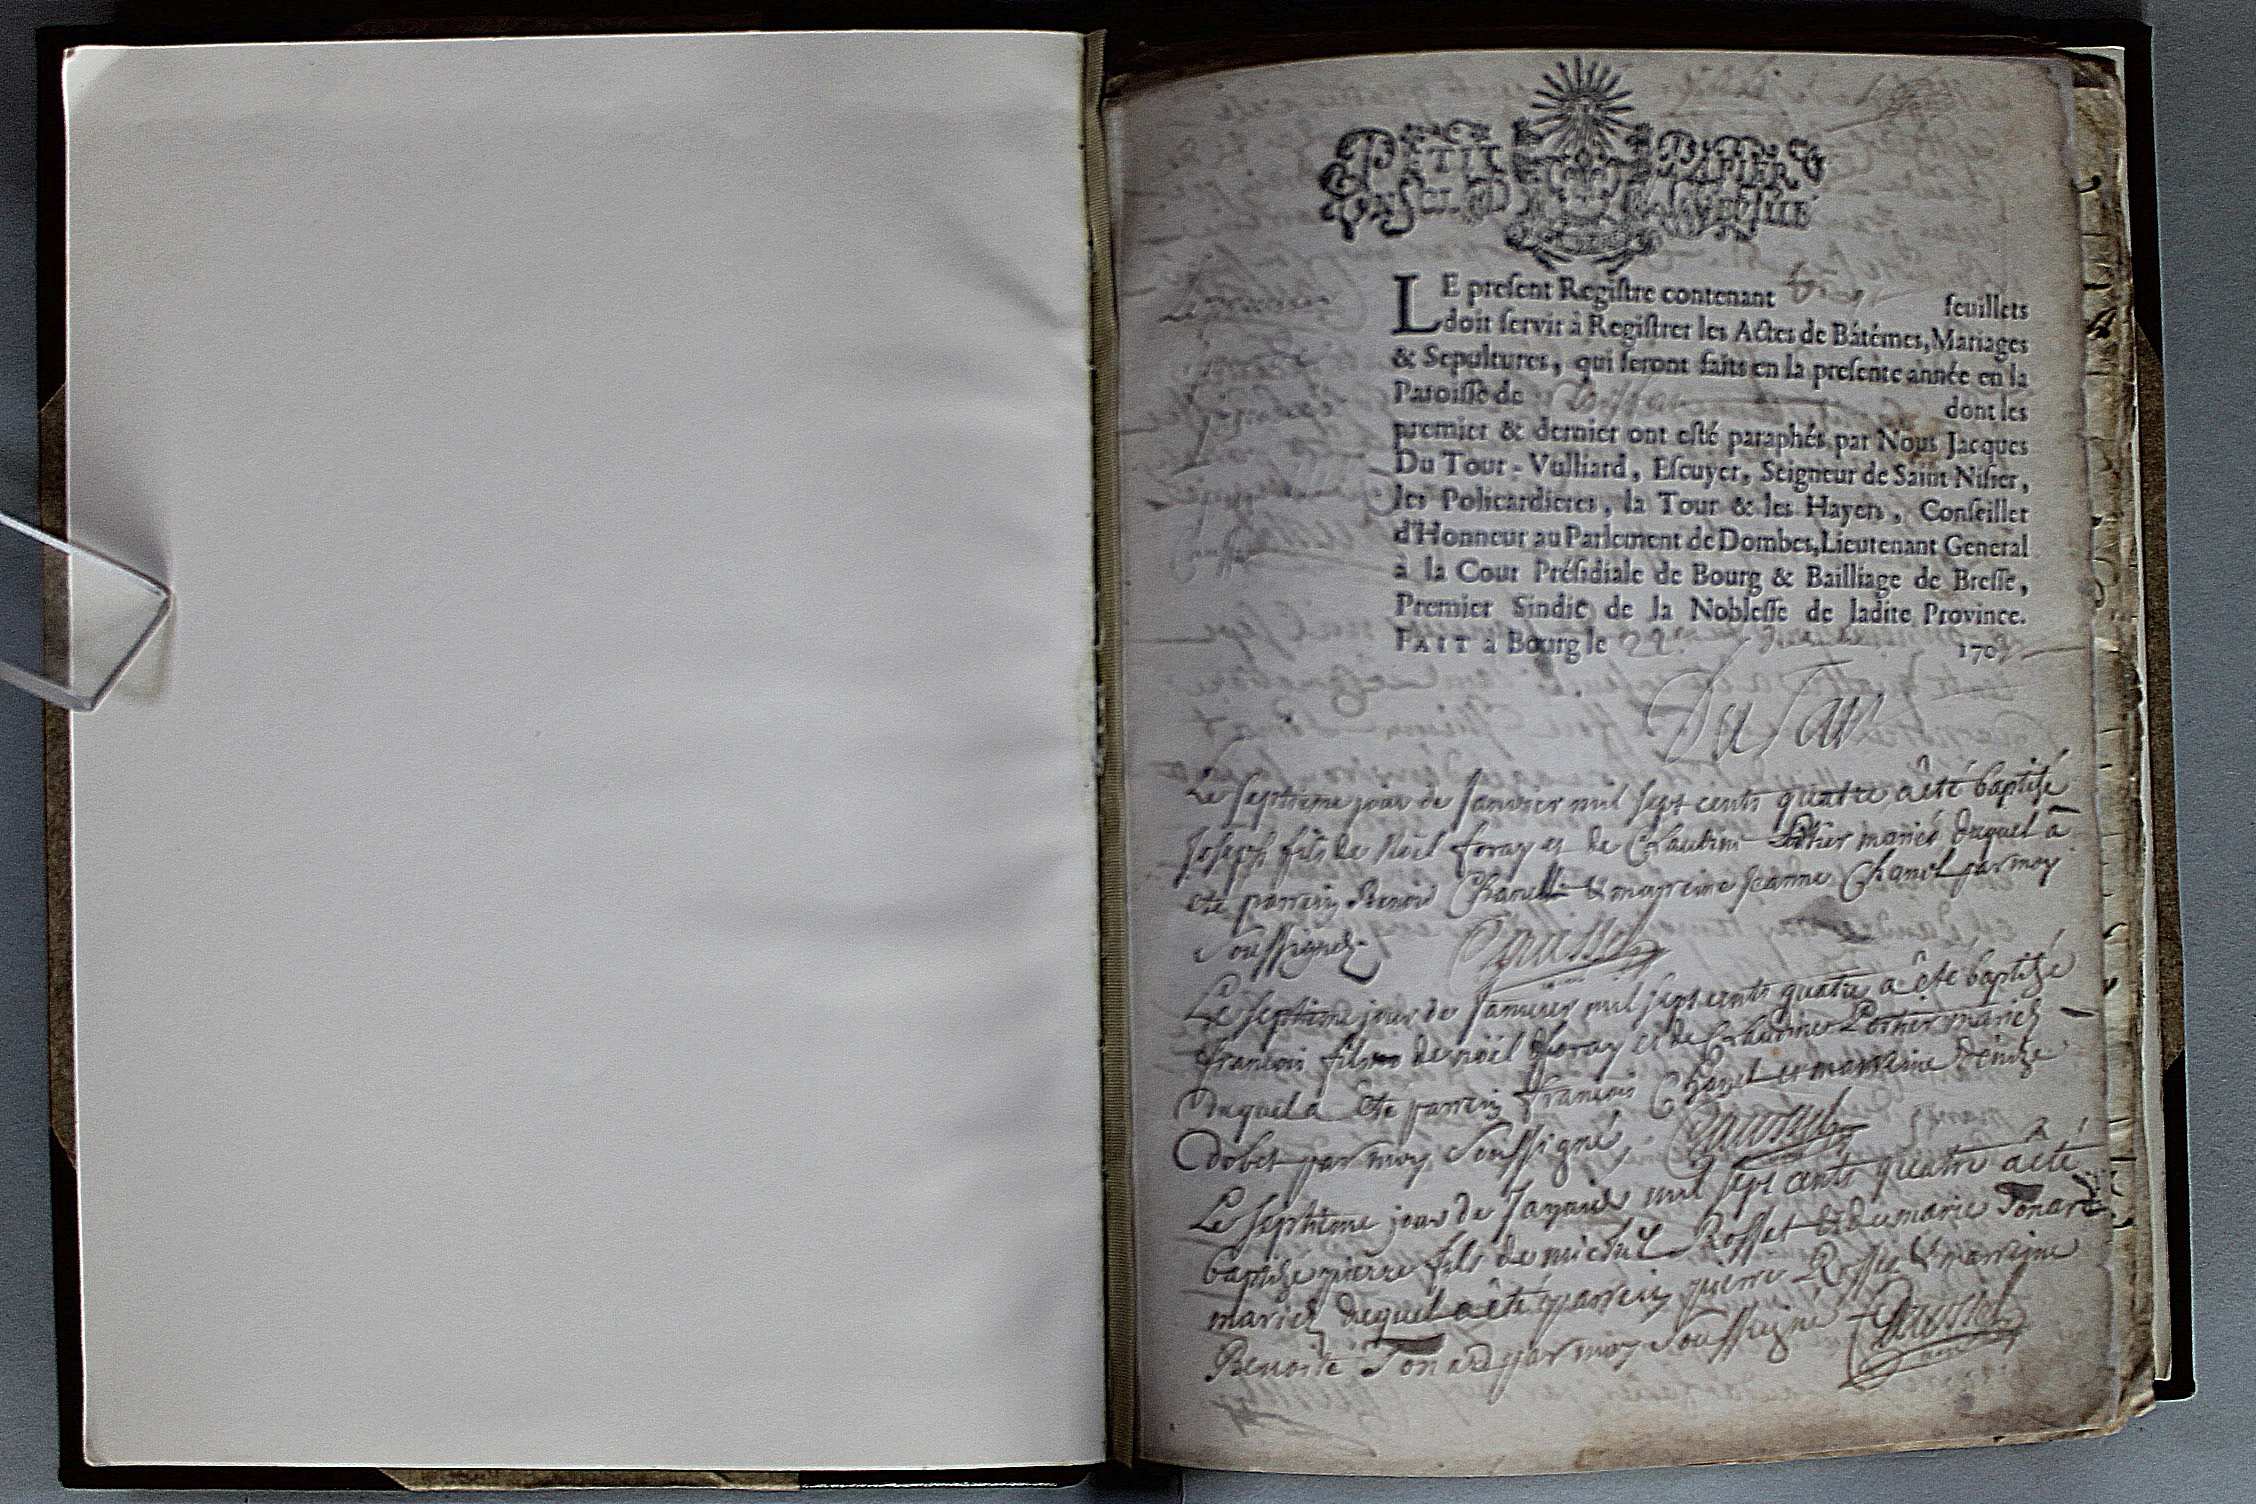 PETIT PAPIER
LE preſent Regiſtre contenant feuillets
doit ſervir à Regiſtrer les Actes de Bâtêmes, Mariages
& Sepultures, qui ſeront faits en la preſente année en la
Paroiſſe de dont les
premier & dernier ont eſté paraphés par Nous Jacques
Du Tour-Vulliard, Eſcuyer, Seigneur de Saint Niſier,
les Policardieres, la Tour & les Hayes, Conſeiller
d'Honneur au Parlement de Dombes, Lieutenant General
à la Cour Préſidiale de Bourg & Bailliage de Breſſe,
Premier Sindic de la Nobleſſe de ladite Province.
FAIT à Bourg le 22e 170
DuTour
Le septieme jour de Janvier mil sept cents quatre a êté baptisé
Joseph fils de Noël foray et de Claudine mariés duquel a
eté parrein Benoid Chanel & marreine Jeanne Chanel par moy
soussigné
Le septieme jour de Janvier mil sept cents quatre a êté baptisé
francois fils de noël foray et de Claudine mariés
Duquel a êté parrein francois Chanel et marreine Denize
Dobet par moy soussigné
Le septième jour de Janvier mil sept cents quatre a êté
baptisé pierre fils de michel Rosset & de marie Ponard
mariés duquel a êté parrein pierre Rosset & marreine
Benoite Ponard par moy soussigné